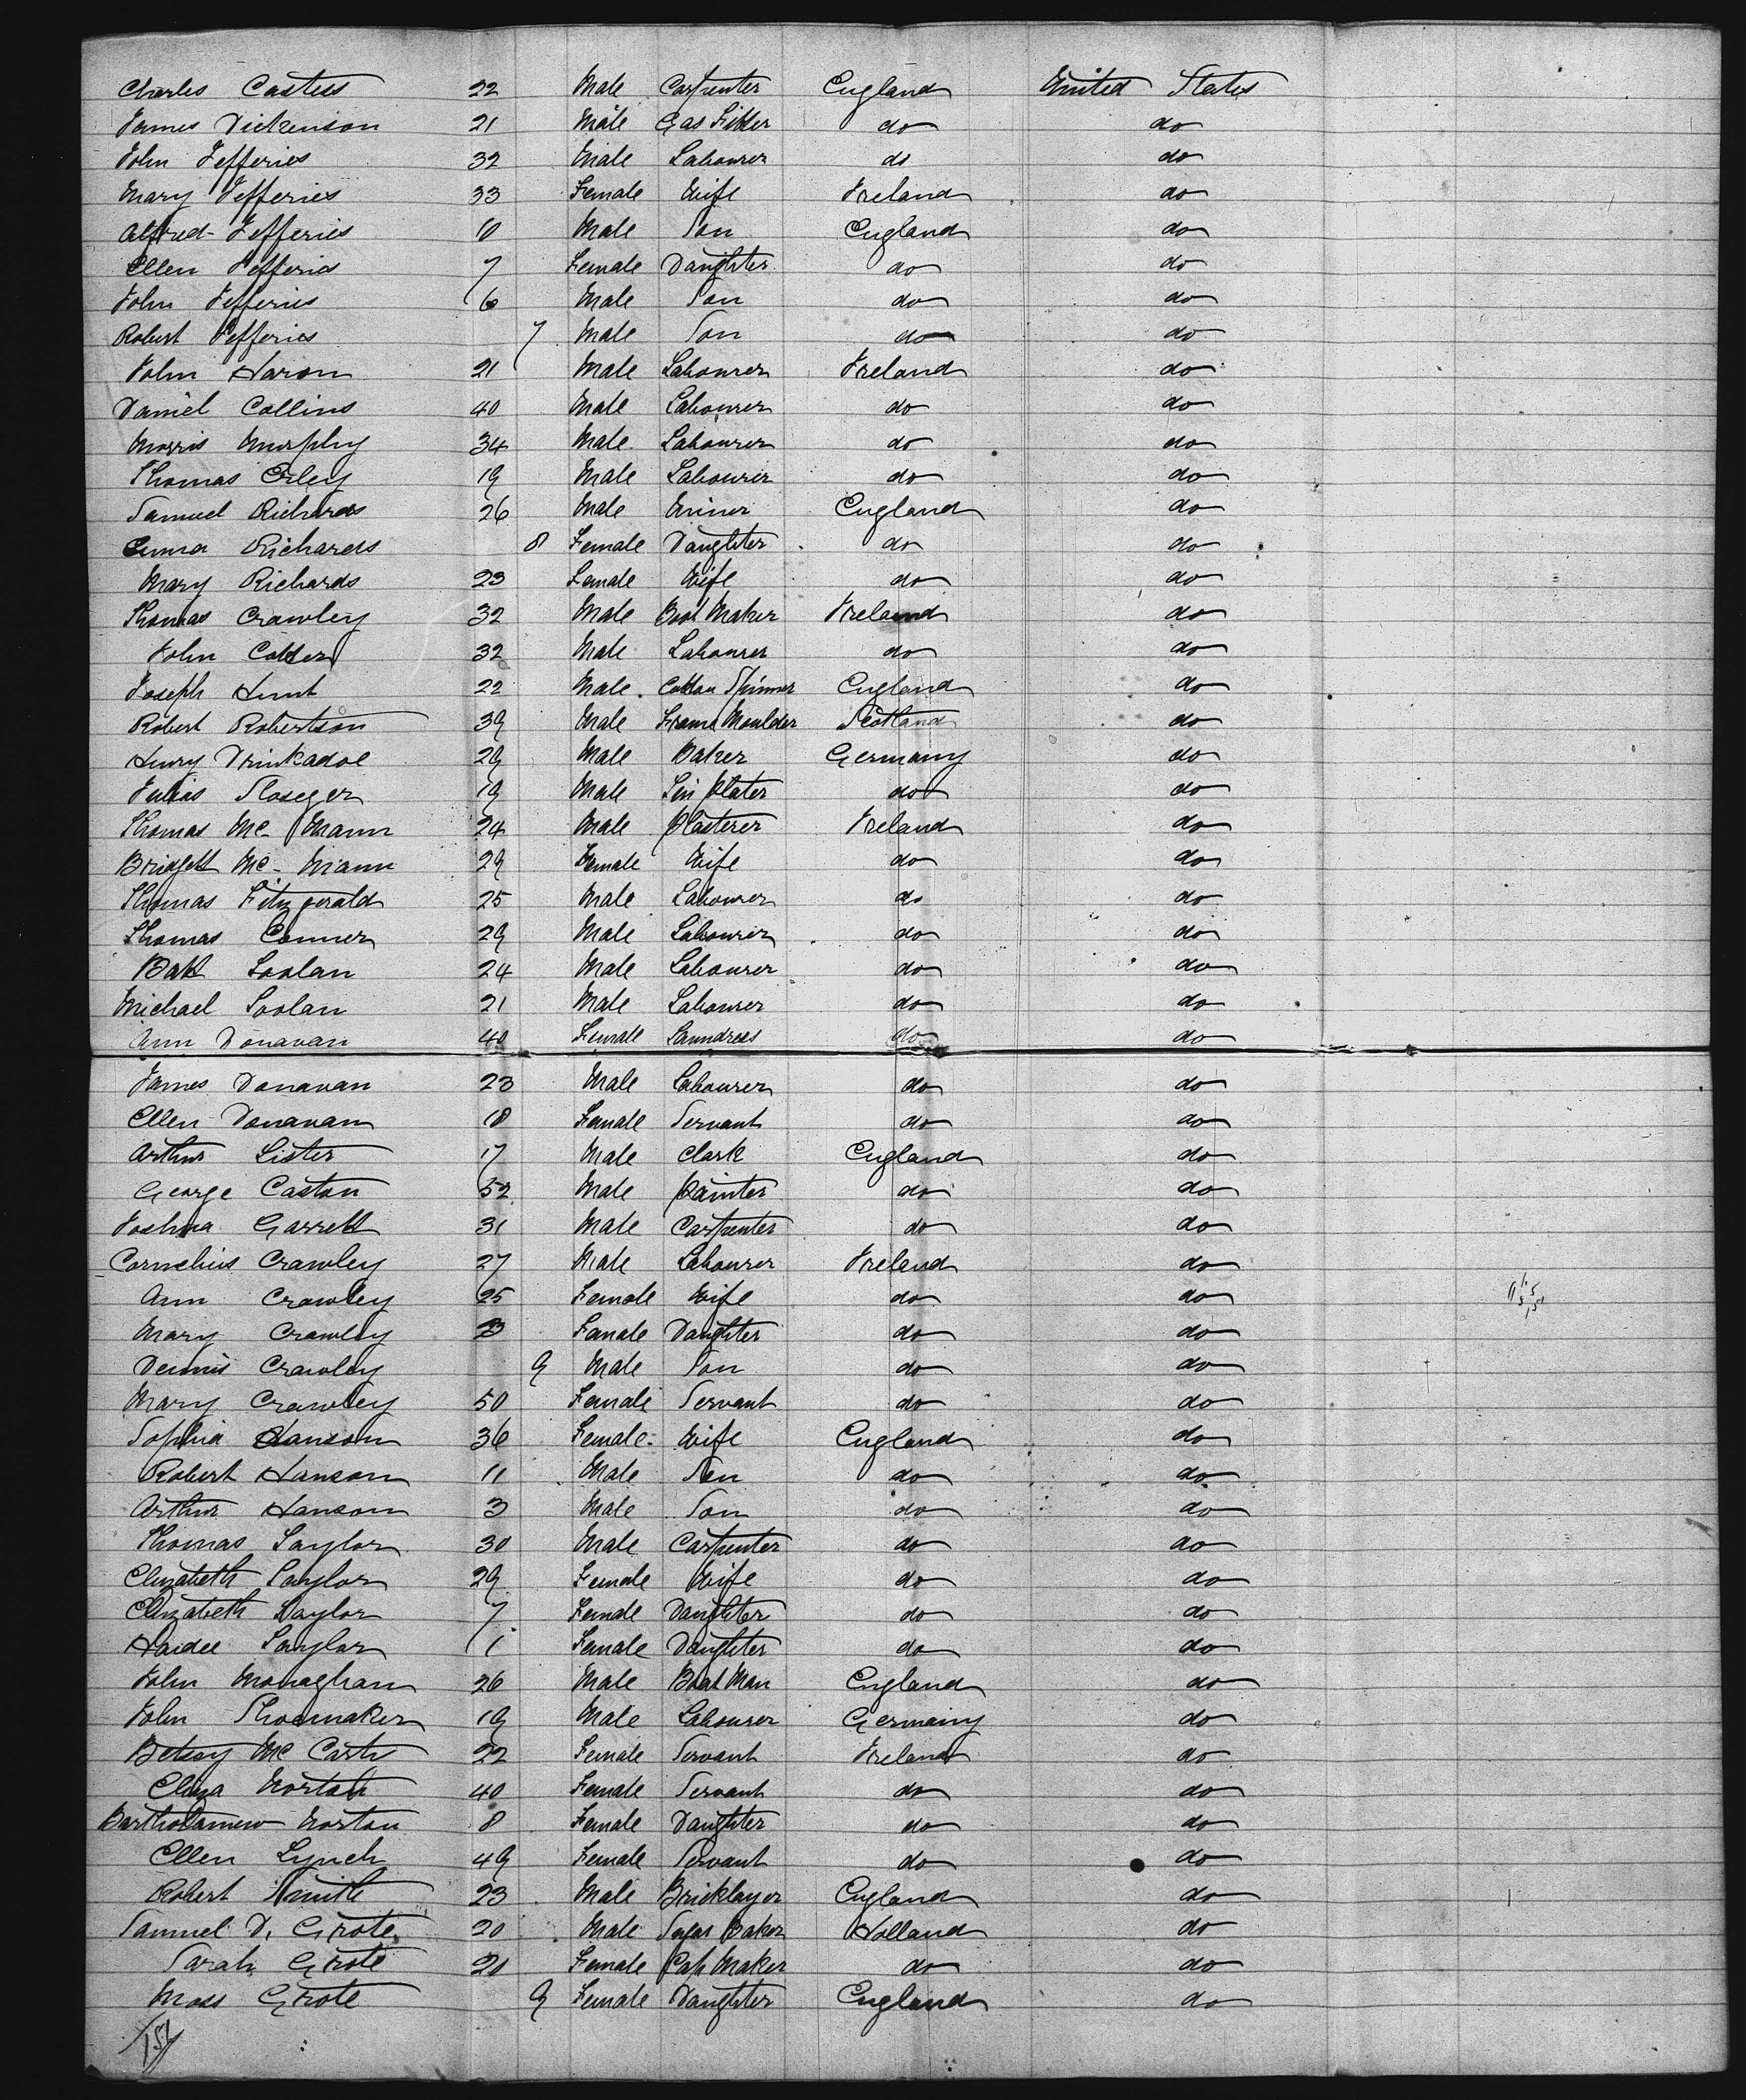 Charles Casters 22 Male Carpenter England United States
James Dickenson 21 Male Gas Fitter do do
John Jefferies 32 Male Labourer do do
Mary Jefferies 33 Female Wife Ireland do
Alfred Jefferies 10 Male Son England do
Ellen Jefferies 7 Female Daughter do do
John Jefferies 6 Male Son do do
Robert Jefferies 7 Male Son do do
John Haron 21 Male Labourer Ireland do
Daniel Collins 40 Male Labourer do do
Morris Murphy 34 Male Labourer do do
Thomas Erley 19 Male Labourer do do
Samuel Richards 26 Male Miner England do
Emma Richards 8 Female Daughter do do
Mary Richards 23 Female Wife do do
Thomas Crawley 32 Male Boot Maker Ireland do
John Cotter 32 Male Labourer do do
Joseph Hunt 22 Male Cotton Spinner England do
Robert Robertson 39 Male Frame Moulder Scotland do
Henry Drinkadoe 29 Male Baker Germany do
Julias 19 Male Tin Plater do do
Thomas Mc Mann 24 Male Plasterer Ireland do
Bridgett Mc Mann 29 Female Wife do do
Thomas Fitzgerald 25 Male Labourer do do
Thomas Conner 29 Male Labourer do do
Batt Toolan 24 Male Labourer do do
Michael Toolan 21 Male Labourer do do
Ann Donavan 40 Female Laundress do do
James Donavan 23 Male Labourer do do
Ellen Donavan 18 Female Servant do do
Arthur Lister 17 Male Clark England do
George Caston 52 Male Painter do do
Joshua Garrett 31 Male Carpenter do do
Cornelius Crawley 27 Male Labourer Ireland do
Ann Crawley 25 Female Wife do do
Mary Crawley 3 Famale Daughter do do
Dennis Crawley 9 Male Son do do
Mary Crawley 50 Female Servant do do
Sophia Hanson 36 Female Wife England do
Robert Hanson 11 Male Son do do
Arthur Hanson 3 Male Son do do
Thomas Taylor 30 Male Carpenter do do
Elizabeth Taylor 29 Female Wife do do
Elizabeth Taylor 7 Female Daughter do do
Haidee Taylor 1 Female Daughter do do
John Monaghan 26 Male Boat Man England do
John Shoemaker 19 Male Labourer Germany do
Betsey Mc Carty 22 Female Servant Ireland do
Eliza Norton 40 Female Servant do do
Bartholamew Norton 8 Female Daughter do do
Ellen Lynch 49 Female Servant do do
Robert Smith 23 Male Bricklayer England do
Samuel D. Grote 20 Male Sugar Baker Holland do
Sarah Grote 21 Female Cap Maker do do
Moss Grote 9 Female Daughter England do